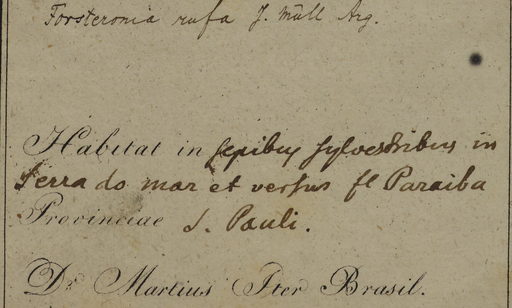 Forsteronia rufa J. Müll Arg.
Habitat in sepibus sylvestribus in
Serra do mar et versus fl Paraiba
Provinciae S. Pauli.
Dr. Martius Iter Brasil.